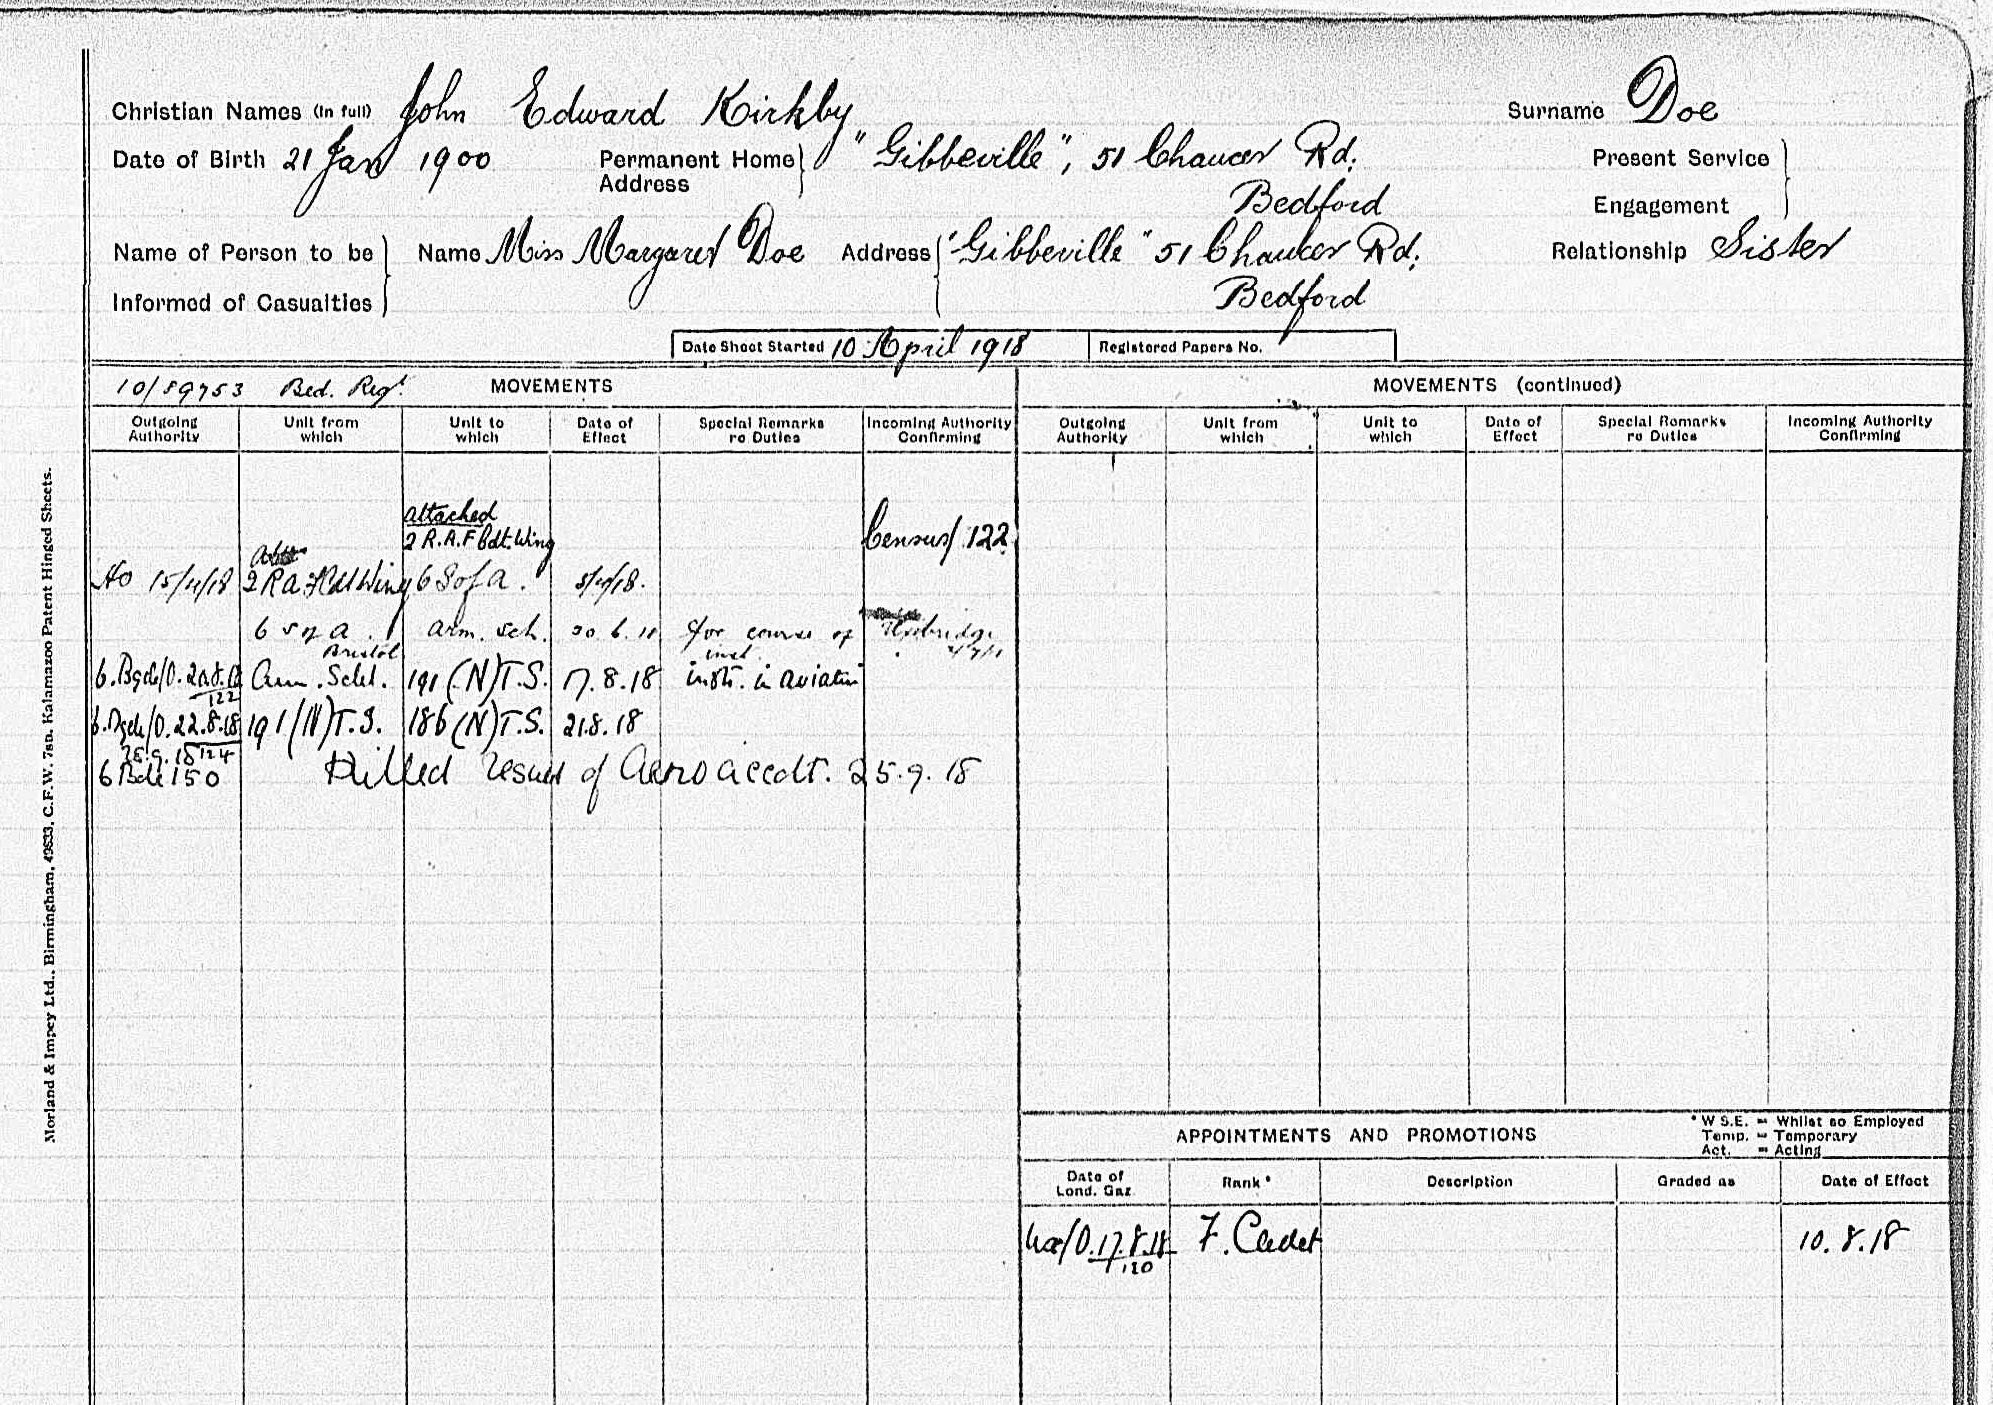 Christian Names (in full) John Edward Kirkby Surname Doe
Date of Birth 21 Jan 1900 Permanent Home Address "Gibbeville", 51 Chaucer Rd. Bedford Present Service Engagement
Name of Person to be Informed of Casualties Name Miss Margaret Doe Address "Gibbeville" 51 Chaucer Rd. Bedford Relationship Sister
Date Sheet Started 10 April 1918 Registered Papers No.
10/89753 Bed. Regt. MOVEMENTS
Outgoing Authority Unit from which Unit to which Date of Effect Special Remarks re Duties Incoming Authority Confirming
attached
2 R.A.F Cdt. Wing Census/122
15/4/18 2 RAF Cdt Wing 6 S of A.
6 S of A. Bristol arm. sch. for course of inst. Uxbridge
6.Bgde/O. 122 Arm. Schl. 191 (N) T.S. 17.8.18 instr. in aviation
6.Bgde/O. 22.8.18 124 191 (N) T.S. 186 (N) T.S. 21.8.18
28.9.18
6 Bde 150 Killed result of Aero accdt. 25.9.18
MOVEMENTS (continued)
Outgoing Authority Unit from which Unit to which Date of Effect Special Remarks re Duties Incoming Authority Confirming
APPOINTMENTS AND PROMOTIONS
* W S.E. = Whilst so Employed
Temp. = Temporary
Act. = Acting
Date of Lond. Gaz. Rank* Description Graded as Date of Effect
/O.17.8.18 120 F. Cadet 10.8.18
Morland & Impey Ltd., Birmingham, 49633, C.F.W. 7sn. Kalamazoo Patent Hinged Sheets.